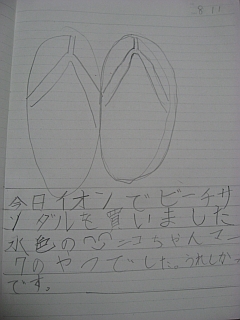 8.11
今日イオンでビーチサ
ンダルを買いました
水色のニコちゃんマー
クのやつでした。うれしかった
です。